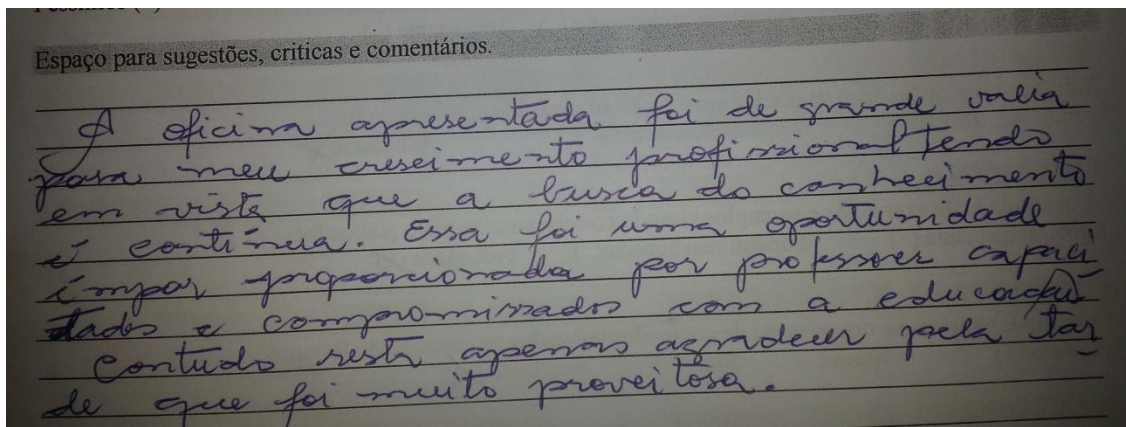 Espaço para sugestões, criticas e comentários.
A oficina apresentada foi de grande valia
para meu crescimento profissional tendo
em vista que a busca do conhecimento
é contínua. Essa foi uma oportunidade
ímpar proporcionada por professores capaci
tados e compromissados com a educação
Contudo resta apenas agradecer pela tar
de que foi muito proveitosa.